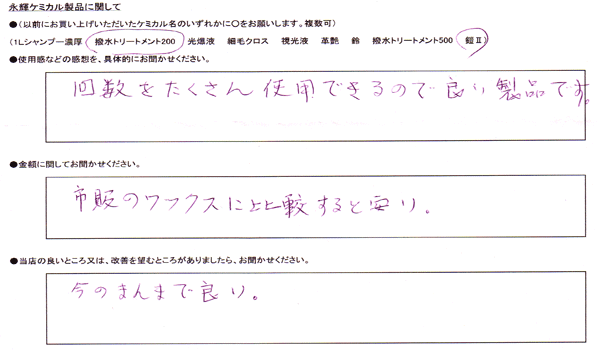 永輝ケミカル製品に関して
●(以前にお買い上げいただいたケミカル名のいずれかに〇をお願いします。複数可)
(1Lシャンプー濃厚 撥水トリートメント200 光爆液 細毛クロス 視光液 革艶 鈴 撥水トリートメント500 鎧Ⅱ)
●使用感などの感想を、具体的にお聞かせください。
回数をたくさん使用できるので良い製品です。
●金額に関してお聞かせください。
市販のワックスに比較すると安い。
●当店の良いところ又は、改善を望むところがありましたら、お聞かせください。
今のまんまで良い。